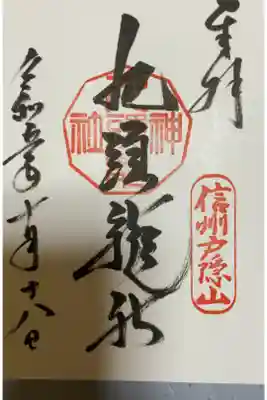 奉拝
信州戸隠山
九頭龍社
神
社
令和五年十月十八日